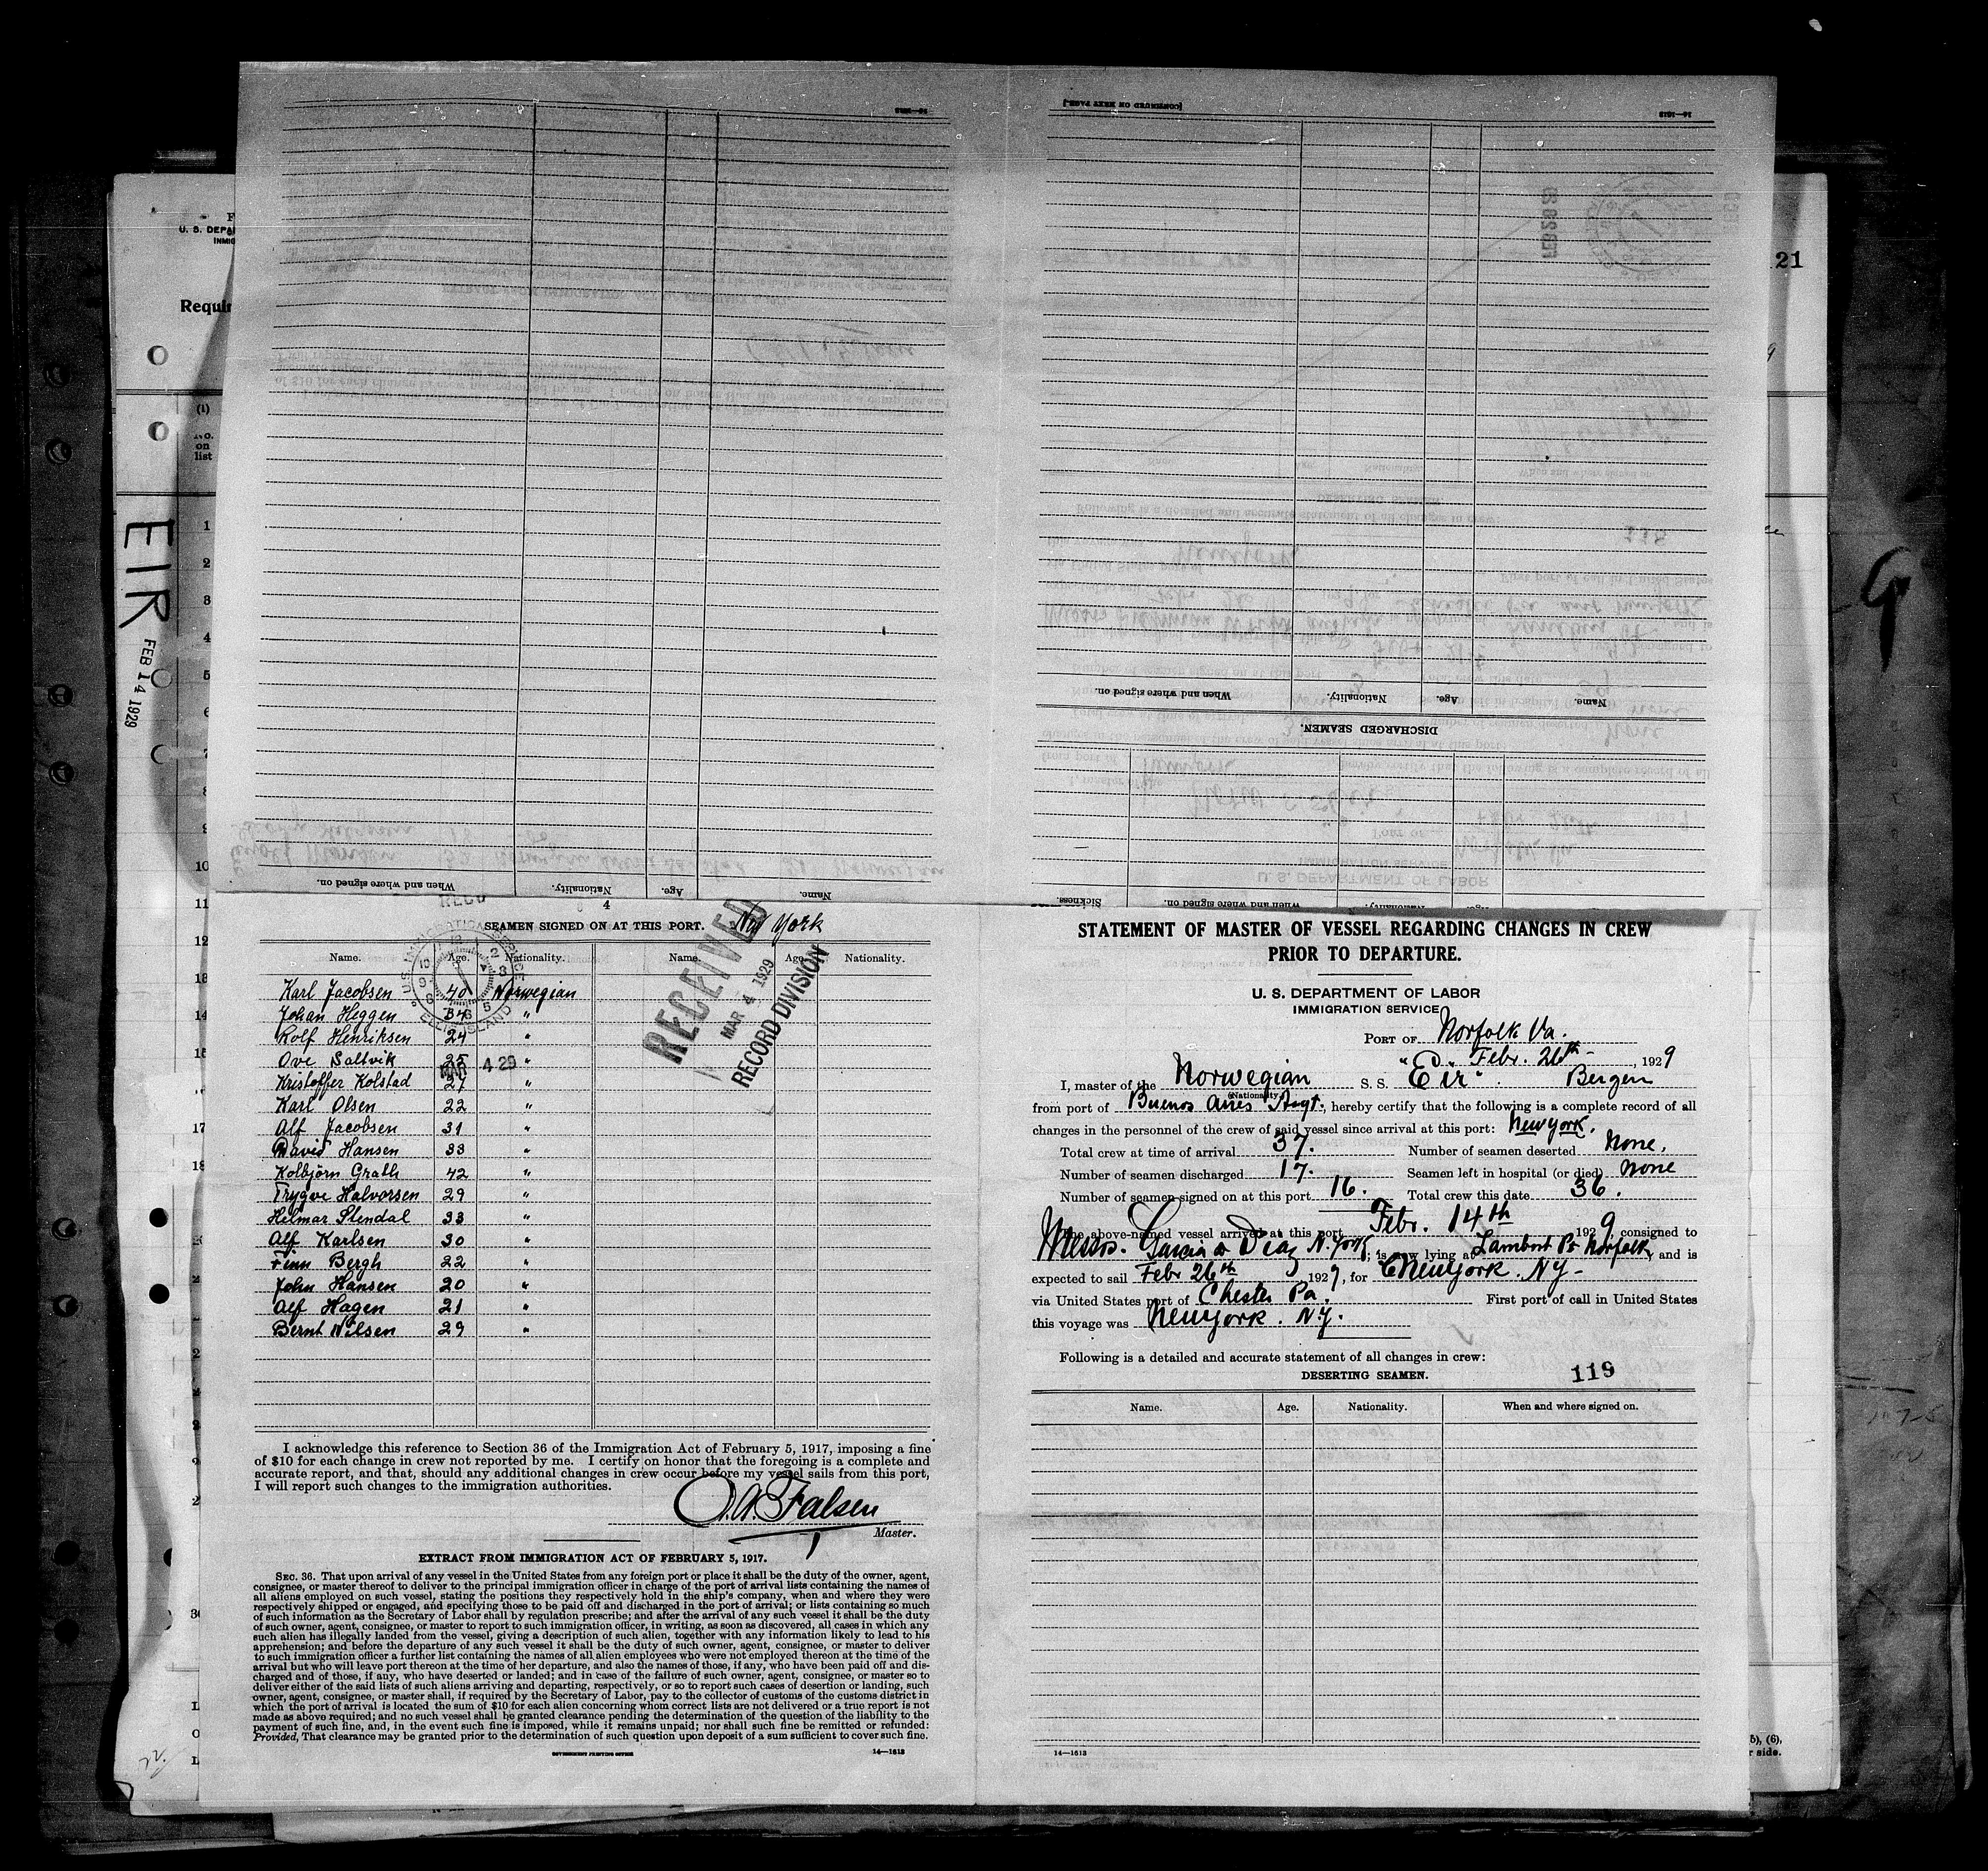 [CONTINUED ON NEXT PAGE.]
14—1513
14—1513
FEB 28 29
F
U. S. DEPA
IMMIG
Requir
21
(1)
No.
on
list
EIR
FEB 14 1929
9
1
2
3
4
5
6
7
8
9
10
11
12
13
14
15
17
18
When and where signed on.
Nationality.
Age.
Name.
DISCHARGED SEAMEN.
When and where signed on.
Nationality.
Age.
Name.
Sickness.
When and where signed on.
Nationality.
Age.
Name.
4
SEAMEN SIGNED ON AT THIS PORT. New York
Name. Age. Nationality. Name. Age. Nationality.
Karl Jacobsen 40 Norwegian
Johan Heggen 34 "
Rolf Henriksen 24 "
Ove Saltvik 25 "
Kristoffer Kolstad 27 "
Karl Olsen 22 "
Alf Jacobsen 31 "
David Hansen 33 "
Kolbjörn Grath 42 "
Trygve Halvorsen 29 "
Helmar Stendal 33 "
Alf Karlsen 30 "
Finn Bergh 22 "
John Hansen 20 "
Alf Hagen 21 "
Bernt Nilsen 29 "
U. S. IMMIGRATION SERVICE
ELLIS ISLAND
MAR 4 29
RECEIVED
MAR 4 1929
RECORD DIVISION
I acknowledge this reference to Section 36 of the Immigration Act of February 5, 1917, imposing a fine
of $10 for each change in crew not reported by me. I certify on honor that the foregoing is a complete and
accurate report, and that, should any additional changes in crew occur before my vessel sails from this port,
I will report such changes to the immigration authorities.
O.A. Falsen
Master.
EXTRACT FROM IMMIGRATION ACT OF FEBRUARY 5, 1917.
SEC. 36. That upon arrival of any vessel in the United States from any foreign port or place it shall be the duty of the owner, agent,
consignee, or master thereof to deliver to the principal immigration officer in charge of the port of arrival lists containing the names of
all aliens employed on such vessel, stating the positions they respectively hold in the ship's company, when and where they were
respectively shipped or engaged, and specifying those to be paid off and discharged in the port of arrival; or lists containing so much
of such information as the Secretary of Labor shall by regulation prescribe; and after the arrival of any such vessel it shall be the duty
of such owner, agent, consignee, or master to report to such immigration officer, in writing, as soon as discovered, all cases in which any
such alien has illegally landed from the vessel, giving a description of such alien, together with any information likely to lead to his
apprehension; and before the departure of any such vessel it shall be the duty of such owner, agent, consignee, or master to deliver
to such immigration officer a further list containing the names of all alien employees who were not employed thereon at the time of the
arrival but who will leave port thereon at the time of her departure, and also the names of those, if any, who have been paid off and dis-
charged and of those, if any, who have deserted or landed; and in case of the failure of such owner, agent, consignee, or master so to
deliver either of the said lists of such aliens arriving and departing, respectively, or so to report such cases of desertion or landing, such
owner, agent, consignee, or master shall, if required by the Secretary of Labor, pay to the collector of customs of the customs district in
which the port of arrival is located the sum of $10 for each alien concerning whom correct lists are not delivered or a true report is not
made as above required; and no such vessel shall be granted clearance pending the determination of the question of the liability to the
payment of such fine, and, in the event such fine is imposed, while it remains unpaid; nor shall such fine be remitted or refunded:
Provided, That clearance may be granted prior to the determination of such question upon deposit of a sum sufficient to cover such fine.
GOVERNMENT PRINTING OFFICE 14—1513
STATEMENT OF MASTER OF VESSEL REGARDING CHANGES IN CREW
PRIOR TO DEPARTURE.
U. S. DEPARTMENT OF LABOR
IMMIGRATION SERVICE
PORT OF Norfolk Va.
Febr. 26th, 1929
I, master of the Norwegian S. S. "Eir". Bergen
(Nationality)
from port of Buenos Aires Argt., hereby certify that the following is a complete record of all
changes in the personnel of the crew of said vessel since arrival at this port: New york.
Total crew at time of arrival 37. Number of seamen deserted None.
Number of seamen discharged 17. Seamen left in hospital (or died) None
Number of seamen signed on at this port 16. Total crew this date 36.
The above-named vessel arrived at this port Febr. 14th 1929 consigned to
Messrs. Garcia & Diaz N. York; is now lying at Lambert Pt Norfolk, and is
expected to sail Febr 26th, 1929, for New york. NY-
via United States port of Chester Pa. First port of call in United States
this voyage was New york. N.Y.
Following is a detailed and accurate statement of all changes in crew:
DESERTING SEAMEN. 119
Name. Age. Nationality. When and where signed on.
14—1513
5), (6),
r side.